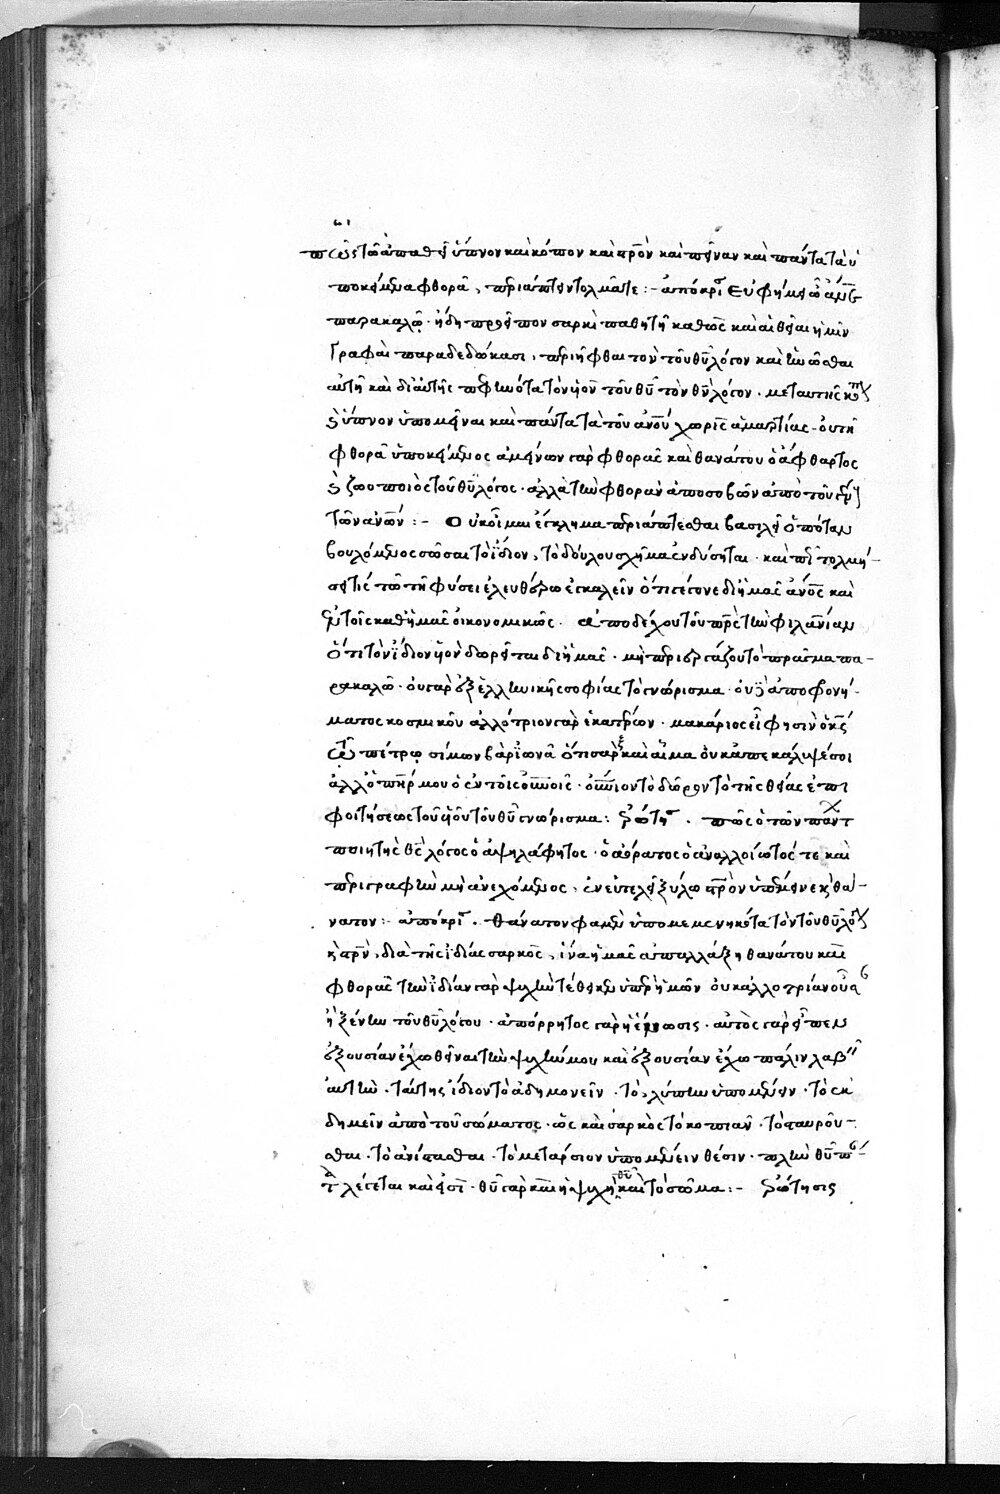 πῶς τῶ ἀπαθεῖ ὕπνον καὶ κόπον καὶ στρον καὶ πεῖναν καὶ πάντα τὰ ὑ
ποκείμενα φθορᾶ, περιάπτειν τολμᾶτε :- ἀπόκρι Εὐφήμει ὦ
παρακαλῶ · ἤδη προεῖπον σαρκὶ παθητῆ καθὼς καὶ αἱ θεῖαι ἡμῖν
γραφαὶ παραδεδώκασι, περιῆφθαι τὸν τοῦ θυ λόγον καὶ ἡνῶσθαι
αὐτῆ καὶ δι' αὐτῆς πεφηνότα τὸν υἱὸν τοῦ θυ τὸν θν λόγον · μετὰ αὐτῆς
καὶ ὕπνον ὑπομεῖναι καὶ πάντα τὰ τοῦ ανου χωρὶς ἁμαρτίας · οὐ τῆ
φθορᾶ ὑποκείμενος ἀμείνων γὰρ φθορᾶς καὶ θανάτου ὁ ἄφθαρτος
καὶ ζωοποιὸς τοῦ θυ λόγος · ἀλλὰ τὴν φθορὰν ἀποσοβῶν ἀπὸ τοῦ
τῶν ανων :- Οὐκ οἶμαι ἔγκλημα περιάπτεσθαι βασιλεῖ ὁπόταν
βουλόμενος σῶσαι τὸ ἴδιον, τὸ δούλου σχῆμα ἐνδύσηται · καὶ τολμή-
σει τίς τῶ τῆ φύσει ἐλευθέρω ἐγκαλεῖν ὅτι γέγονε δι' ἡμᾶς ανος καὶ
ἐν τοῖς καθ' ἡμᾶς οἰκονομικῶς · ἀποδέχου τοῦ πρς τὴν φιλανίαν
ὅτι τὸν ἴδιον υἱὸν δωρεῖται δι' ἡμᾶς · μὴ περιεργάζου τὸ πρᾶγμα πα-
ρακαλῶ · οὐ γὰρ ἐξ ἑλληνικῆς σοφίας τὸ γνώρισμα · οὐδὲ ἀπὸ φρονή-
ματος κοσμικοῦ ἀλλότριον γὰρ ἑκατέρων · μακάριος εἶ φησὶν ὁ κς
τῶ πέτρω σίμων βαριωνᾶ ὅτι σὰρξ καὶ αἷμα οὐκ ἀπεκάλυψέ σοι
ἀλλ' ὁ πηρ μου ὁ ἐν τοῖς ουνοις · ουνιον τὸ δῶρον τὸ τῆς θείας ἐπι
φοιτήσεως τοῦ υἱοῦ τοῦ θυ γνώρισμα : ἐρώτη . πῶς ὁ τῶν πάντ
ποιητὴς θς λόγος ὁ ἀψηλάφητος · ὁ ἀόρατος ὁ ἀναλλοίωτός τε καὶ
περιγραφὴν μὴ ἀνεχόμενος, ἐν εὐτελεῖ ξύλω στρον ὑπέμεινε καὶ θά-
νατον :- ἀπόκρι . θάνατον φαμὲν ὑπομεμενηκότα τὸν τοῦ θυ λόγ
καὶ στρν, διὰ τῆς ἰδίας σαρκὸς, ἵνα ἡμᾶς ἀπαλλάξη θανάτου καὶ
φθορᾶς τὴν ἰδίαν γὰρ ψυχὴν τέθεικεν ὑπὲρ ἡμῶν οὐκ ἀλλοτρίαν οὖσ
ἢ ξένην τοῦ θυ λόγου · ἀπόρρητος γὰρ ἡ ἕνωσις · αὐτὸς γὰρ εἶπεν
ἐξουσίαν ἔχω θεῖναι τὴν ψυχήν μου καὶ ἐξουσίαν ἔχω πάλιν λαβ
αὐτὴν · ταύτης ἴδιον τὸ ἀδημονεῖν · τὸ λύπην ὑπομένειν · τὸ ἐκ
δημεῖν ἀπὸ τοῦ σώματος · ὡς καὶ σαρκὸς τὸ κοπιᾶν · τὸ σταυροῦ-
σθαι · τὸ ἀνίστασθαι · τὸ μετάρσιον ὑπομένειν θέσιν · πλὴν θυ
λέγεται καὶ ἐστ · θυ γὰρ καὶ ἡ ψυχὴ θυ καὶ τὸ σῶμα :- ἐρώτησις